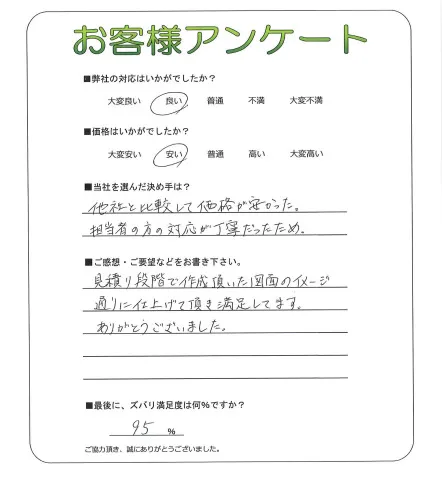 お客様アンケート
■弊社の対応はいかがでしたか？
大変良い 良い 普通 不満 大変不満
■価格はいかがでしたか？
大変安い 安い 普通 高い 大変高い
■当社を選んだ決め手は？
他社と比較して価格が安かった。
担当者の方の対応が丁寧だったため。
■ご感想・ご要望などをお書き下さい。
見積り段階で作成頂いた図面のイメージ
通りに仕上げて頂き満足してます。
ありがとうございました。
■最後に、ズバリ満足度は何%ですか？
95 %
ご協力頂き、誠にありがとうございました。